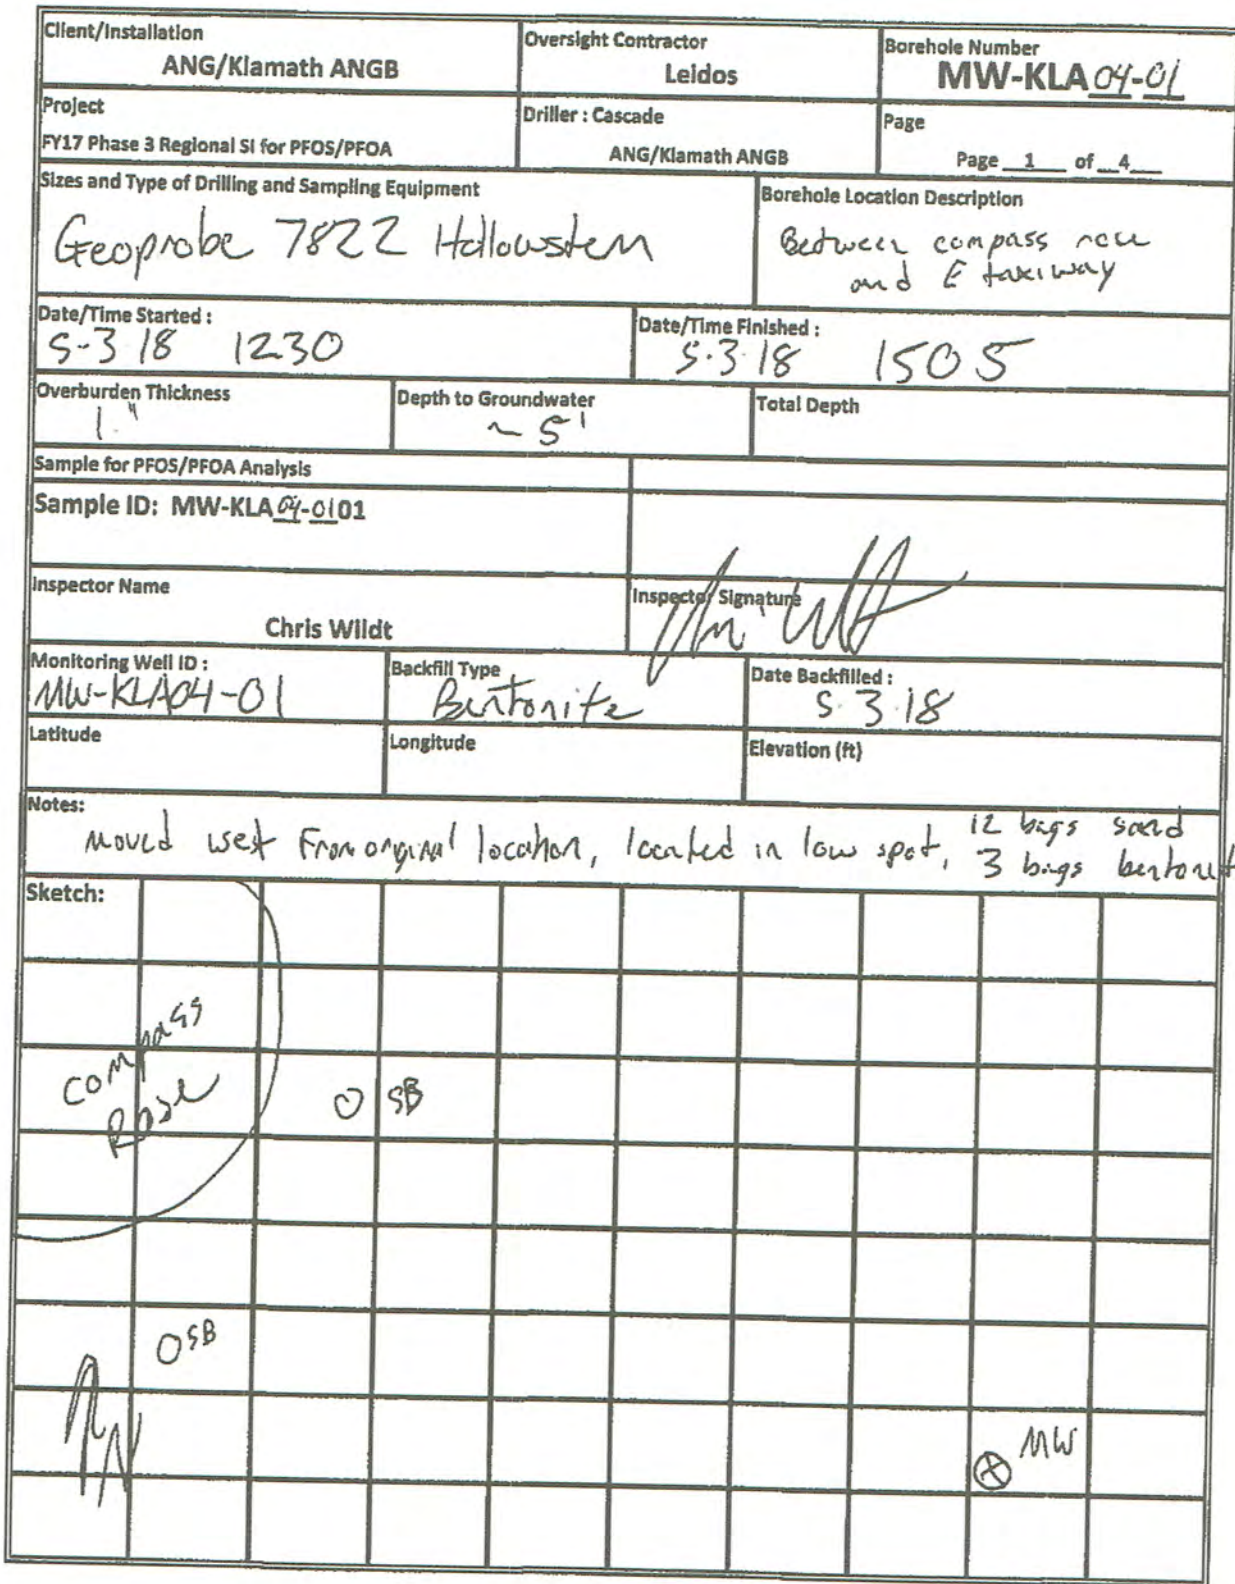 Client/Installation
ANG/Klamath ANGB
Oversight Contractor
Leidos
Borehole Number
MW-KLA 04-01
Project
FY17 Phase 3 Regional SI for PFOS/PFOA
Driller : Cascade
ANG/Klamath ANGB
Page
Page 1 of 4
Sizes and Type of Drilling and Sampling Equipment
Geoprobe 7822 Hollowstem
Borehole Location Description
Between compass rose
and E taxiway
Date/Time Started :
5-3 18 1230
Date/Time Finished :
5.3.18 1505
Overburden Thickness
1."
Depth to Groundwater
~ 5'
Total Depth
Sample for PFOS/PFOA Analysis
Sample ID: MW-KLA 04-0101
Inspector Name
Chris Wildt
Inspector Signature
Monitoring Well ID :
MW-KLA04-01
Backfill Type
Bentonite
Date Backfilled :
5.3.18
Latitude
Longitude
Elevation (ft)
Notes:
12 bags sand
moved west From original location, located in low spot, 3 bags bentonit
Sketch:
Compass
Rose
SB
SB
N
MW